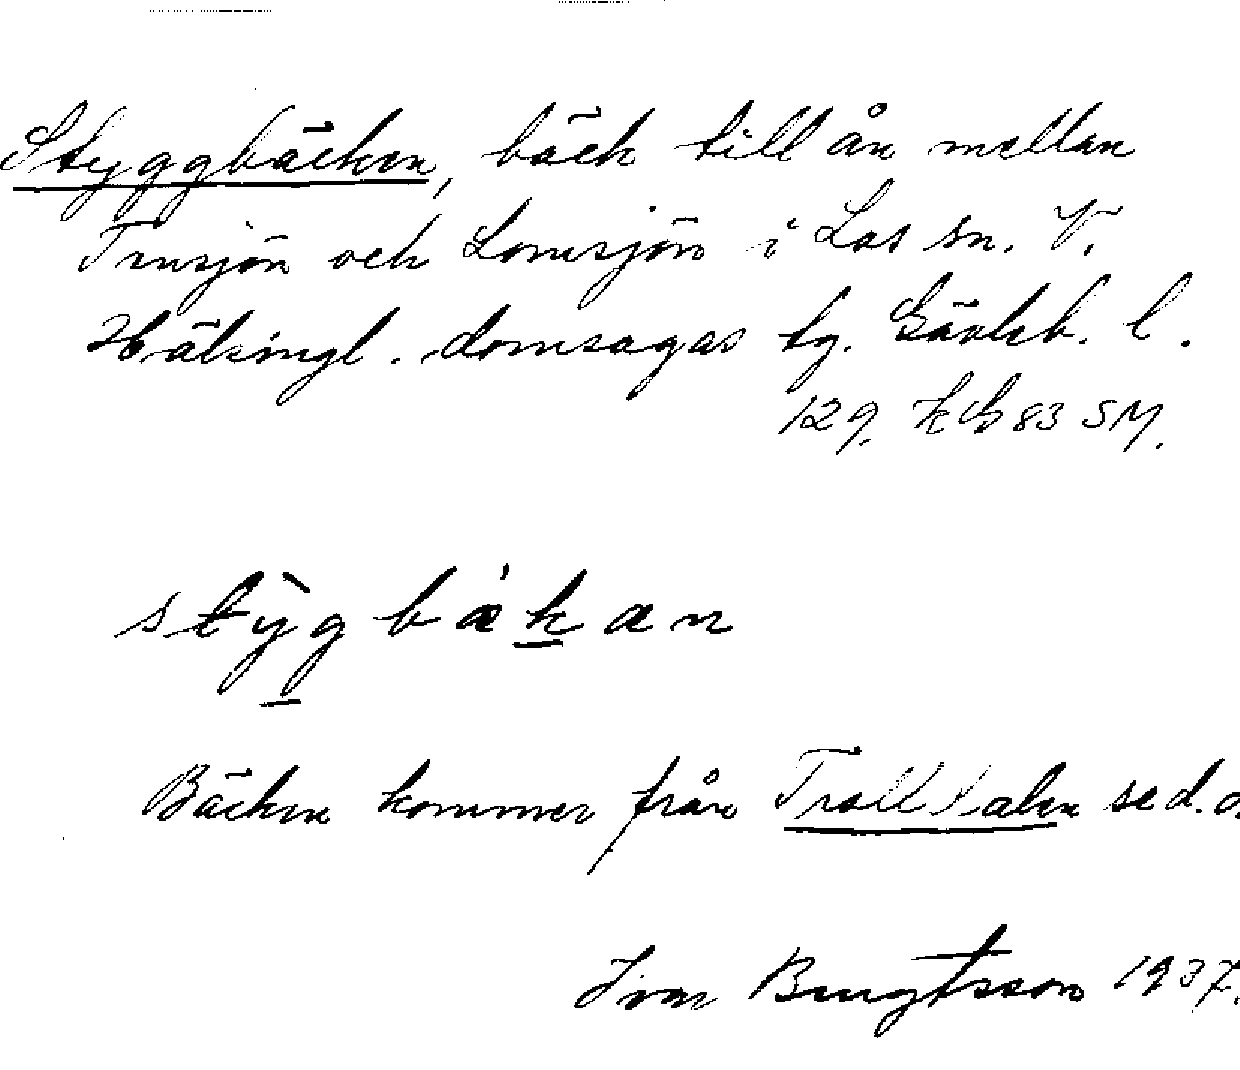 Styggbäcken, bäck till ån mellan
Tensjön och Lomsjön i Los sn. V.
Hälsingl. domsagas tg. Gävleb. l.
129. KB 83 SM.
stỳgbækan
Bäcken kommer från Trolldalen se d.o.
Ivar Bengtsson 1937.